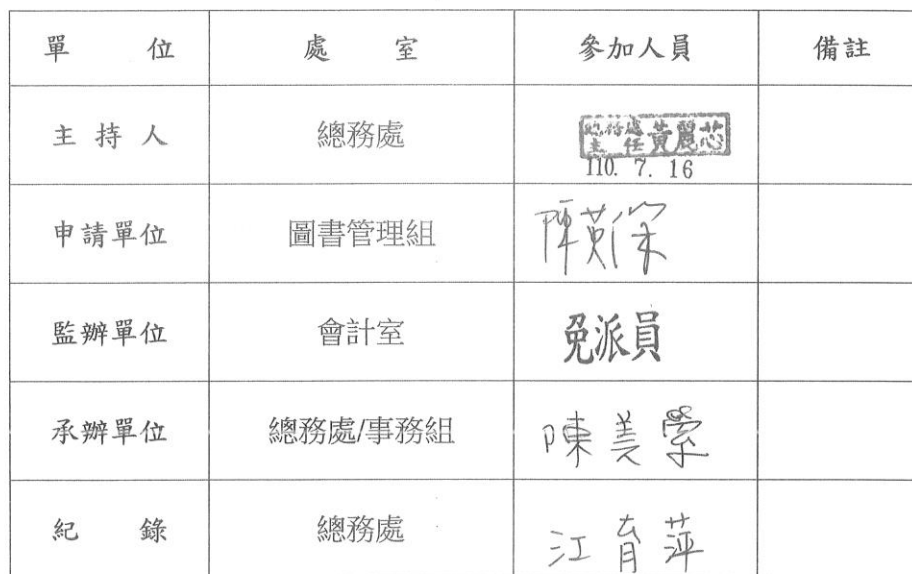 單 位 處 室 參加人員 備註
主 持 人 總務處 總務處 主 任 黃麗芯
110. 7. 16
申請單位 圖書管理組 陳英
監辦單位 會計室 免派員
承辦單位 總務處/事務組 陳美
紀 錄 總務處 江育萍